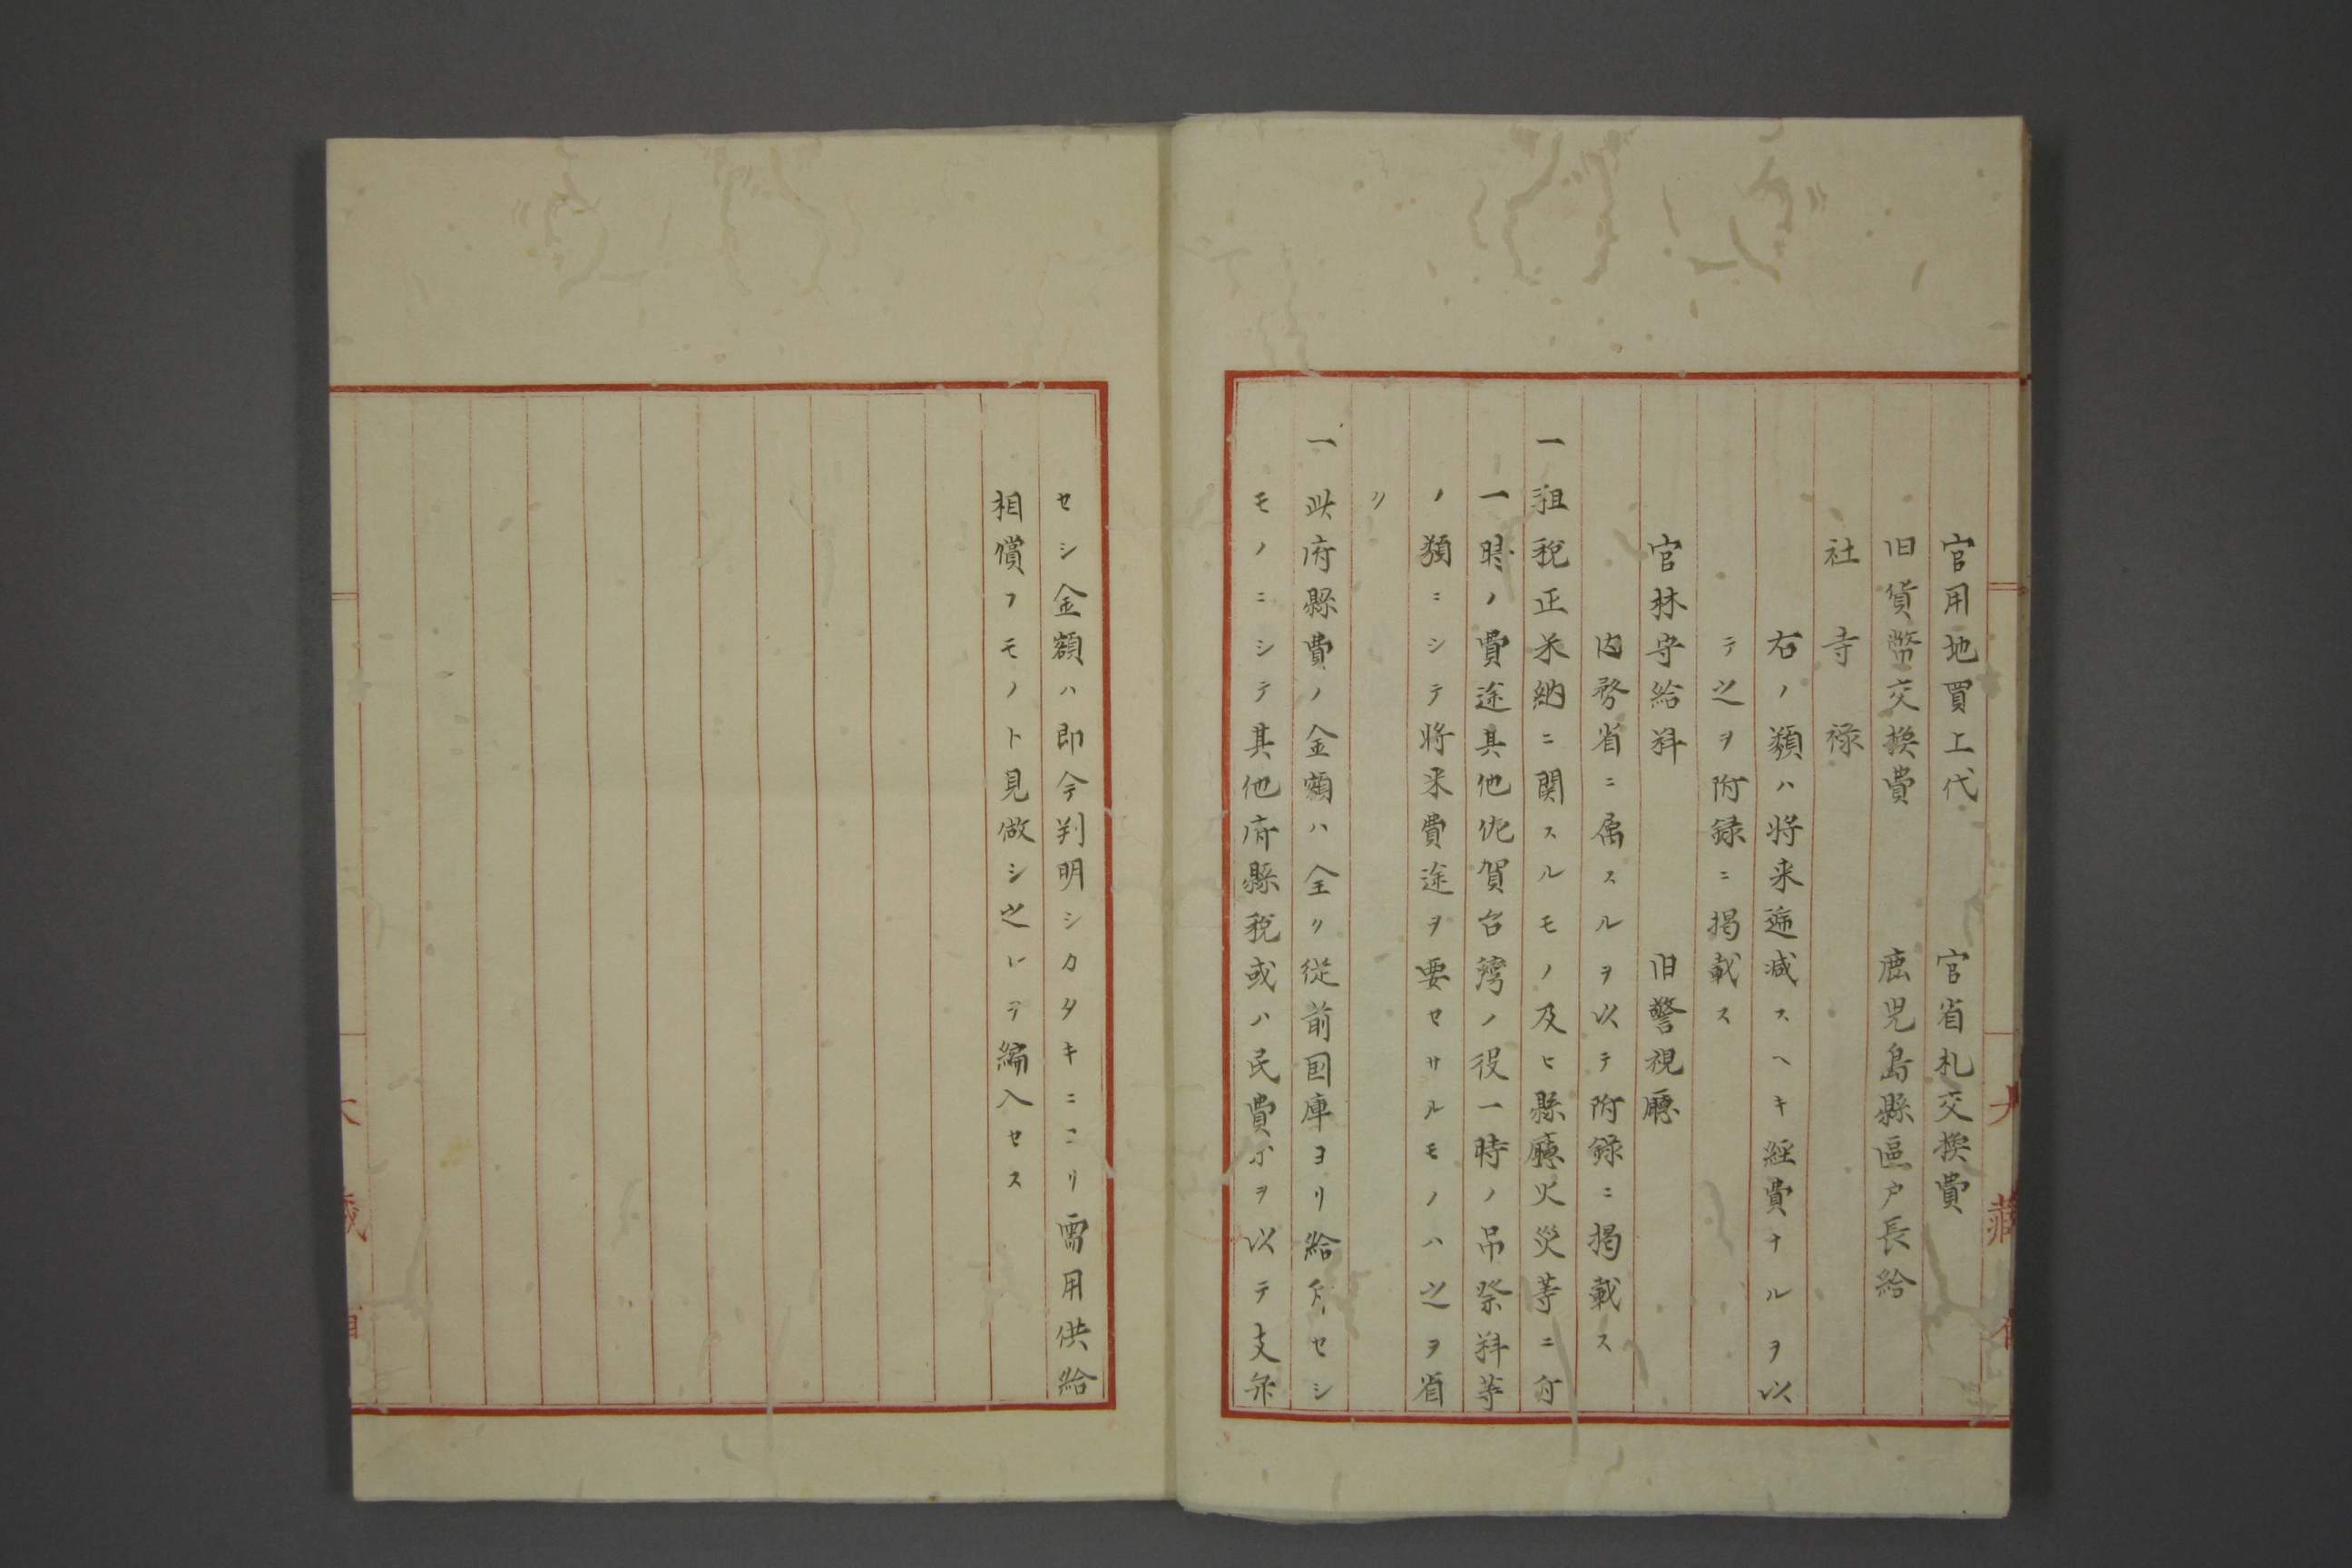 官用地買上代　官省札交換費
旧貨幣交換費　鹿児島縣區戸長給
社寺禄
右ノ類ハ将来逓減スヘキ経費ナルヲ以
テ之ヲ附録ニ掲載ス
官林守給料　旧警視廳
内務省ニ属スルヲ以テ附録ニ掲載ス
一租税正米納ニ関スルモノ及ヒ縣廳火災等ニ付
一時ノ費途其他佐賀台湾ノ役一時ノ吊祭料等
ノ類ニシテ将来費途ヲ要セサルモノハ之ヲ省
ク
一此府縣費ノ金額ハ全ク従前国庫ヨリ給與セシ
モノニシテ其他府縣税或ハ民費等ヲ以テ支弁
セシ金額ハ即今判明シカタキニヨリ需用供給
相償フモノト見做シ之レヲ編入セス
大藏省